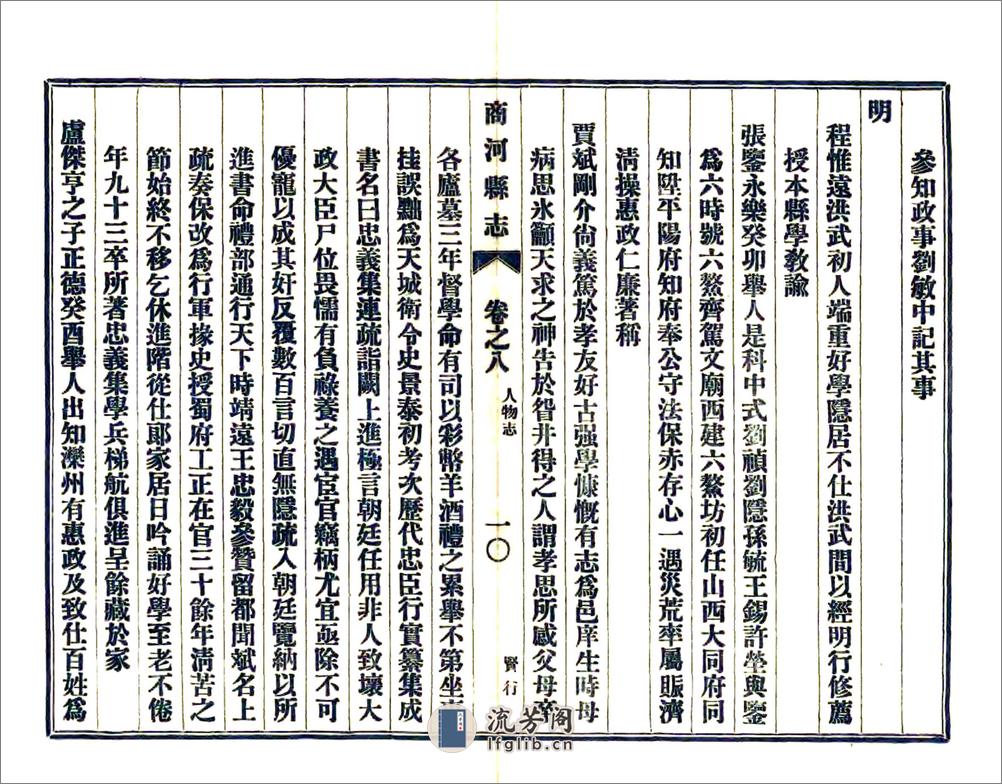 參知政事劉敏中記其事
明
程惟遠洪武初人端重好學隱居不仕洪武間以經明行修薦
授本縣學敎諭
張鑒永樂癸卯舉人是科中式劉禎劉隱孫毓王錫許塋與鑒
爲六時號六鰲齊駕文廟西建六鰲坊初任山西大同府同
知陞平陽府知府奉公守法保赤存心一遇災荒率屬賑濟
淸操惠政仁廉著稱
賈斌剛介尙義篤於孝友好古强學慷慨有志爲邑庠生時母
病思氷籲天求之神吿於眢井得之人謂孝思所感父母卒
商河縣志
卷之八
人物志
一〇
賢行
各廬墓三年督學命有司以彩幣羊酒禮之累舉不第坐
挂誤黜爲天城衛令史景泰初考次歷代忠臣行實纂集成
書名曰忠義集連疏詣闕上進極言朝廷任用非人致壞大
政大臣尸位畏懦有負祿養之遇宦官竊柄尤宜亟除不可
優寵以成其奸反覆數百言切直無隱疏入朝廷覽納以所
進書命禮部通行天下時靖遠王忠毅參贊留都聞斌名上
疏奏保改爲行軍掾史授蜀府工正在官三十餘年淸苦之
節始終不移乞休進階從仕郞家居日吟誦好學至老不倦
年九十三卒所著忠義集學兵梯航俱進呈餘藏於家
盧傑亨之子正德癸酉舉人出知灤州有惠政及致仕百姓爲
流芳阁
lfglib.cn